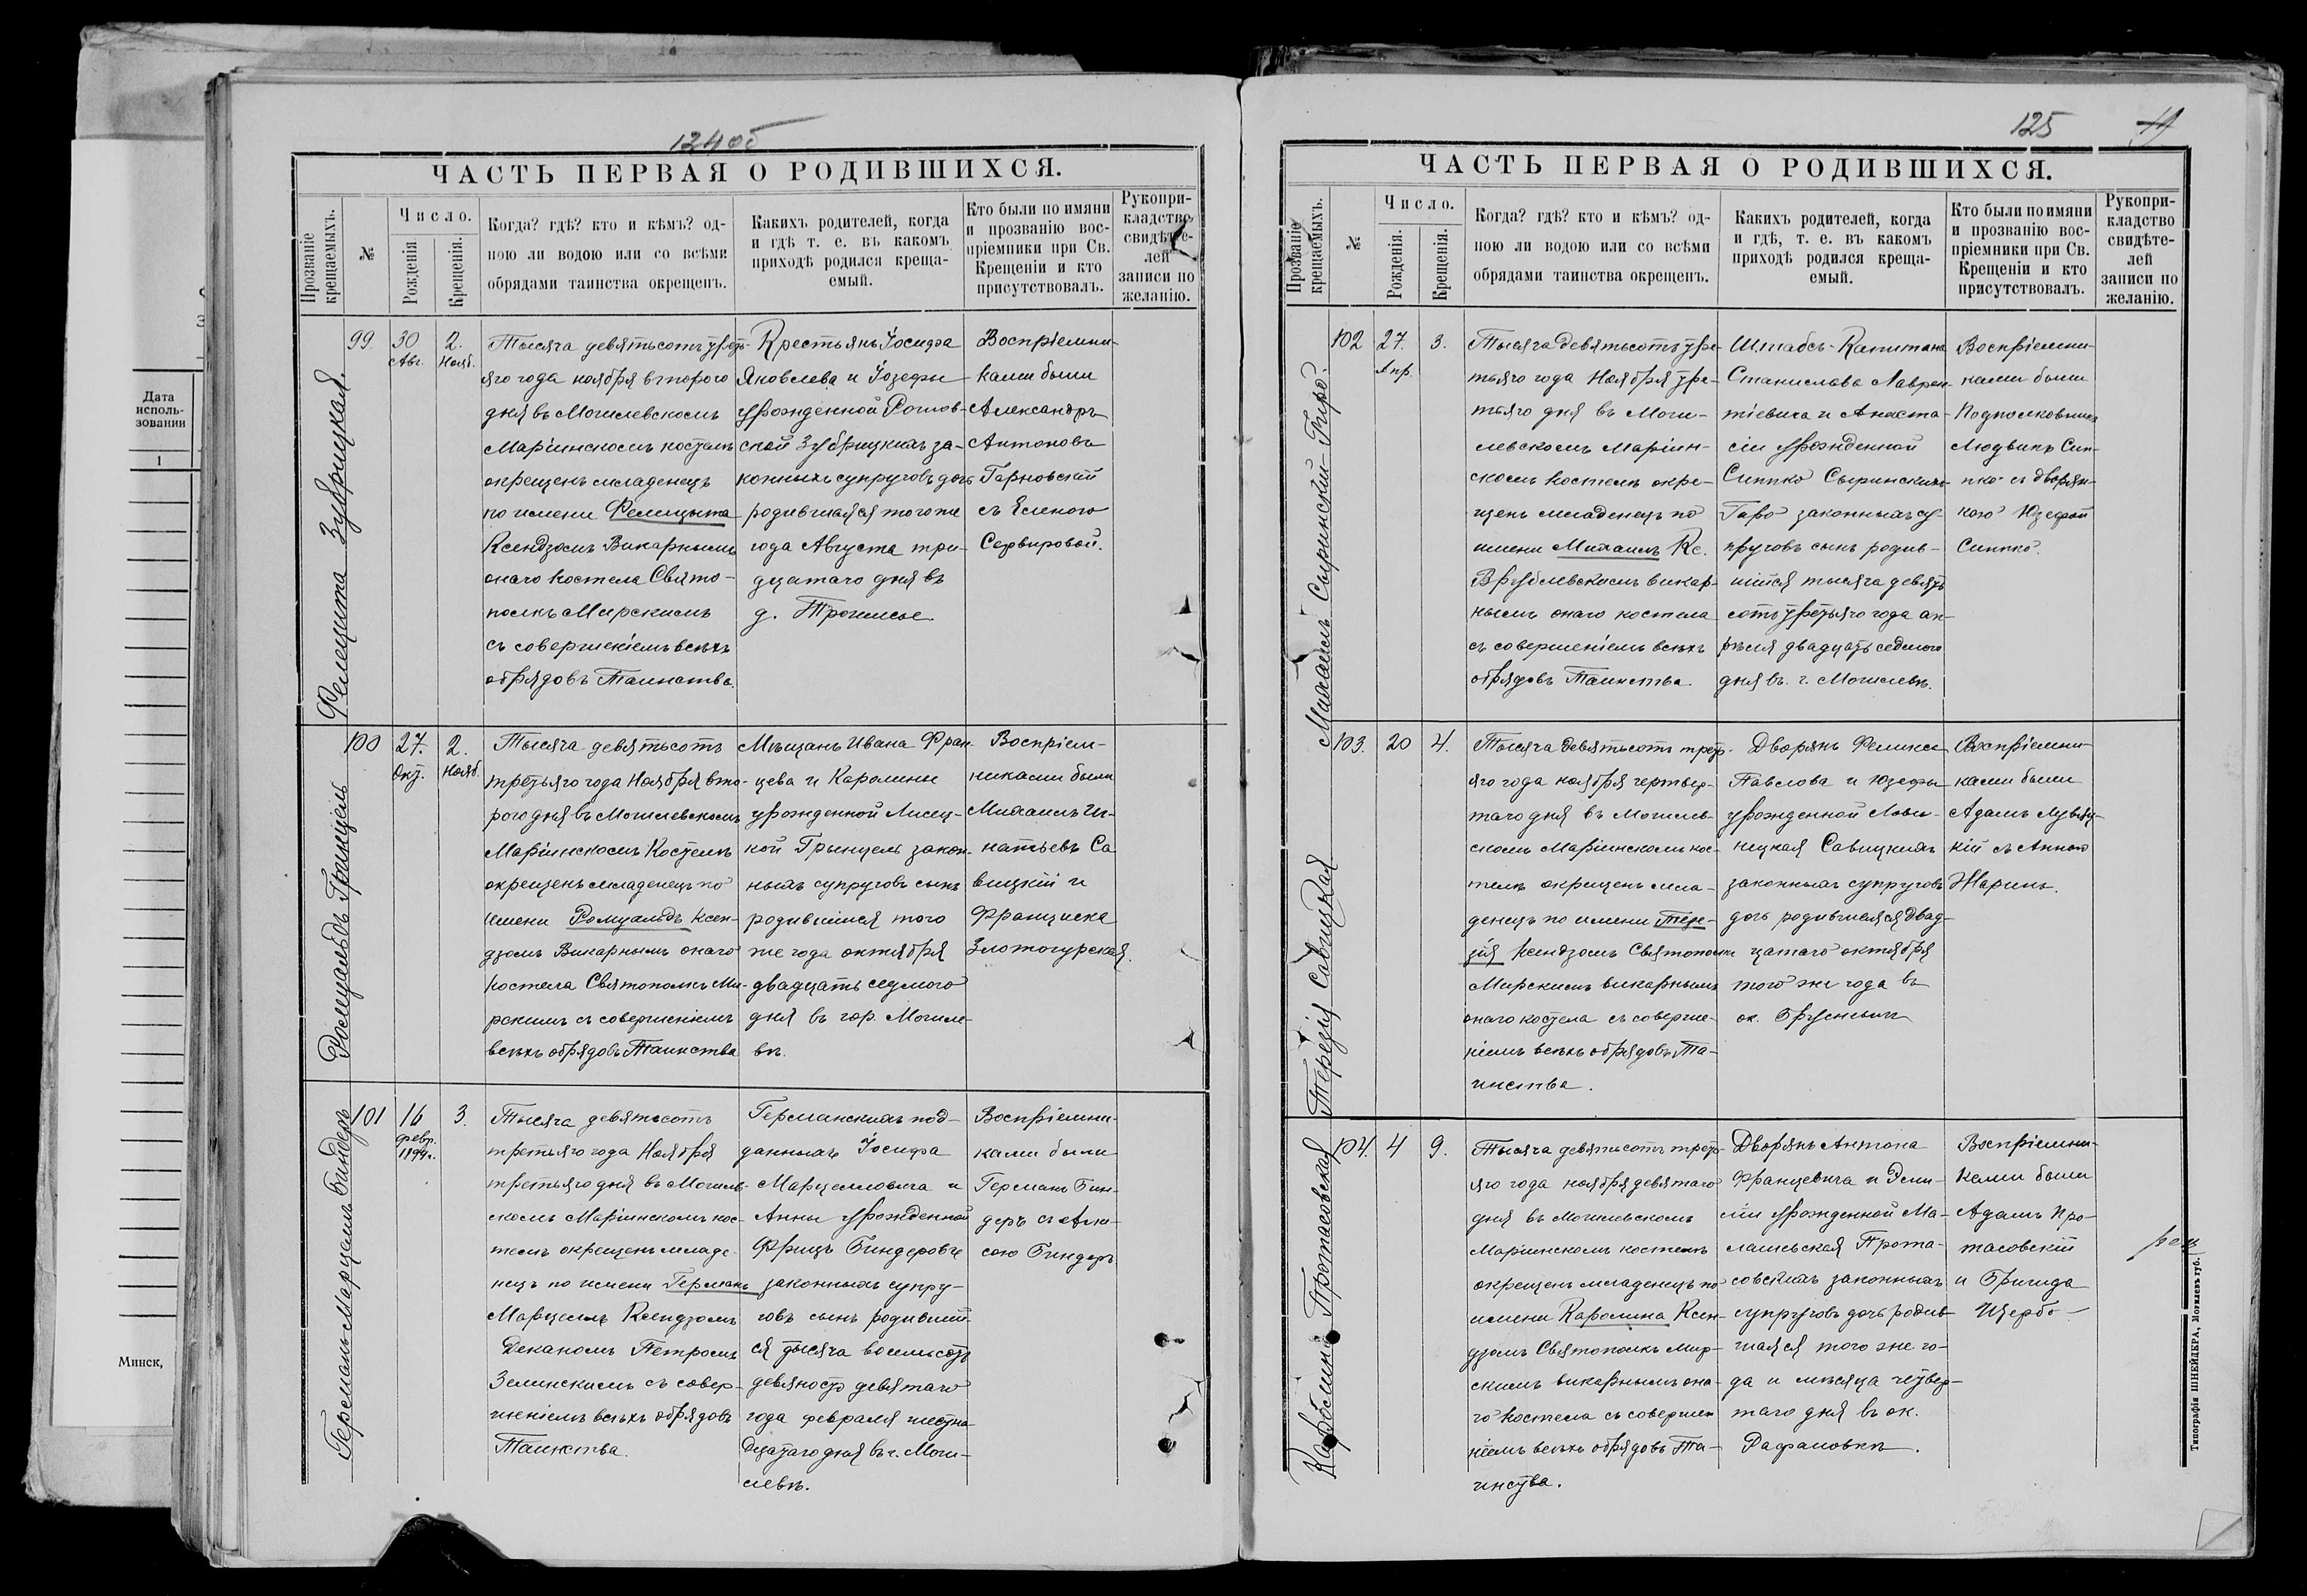 Дата
исполь-
зования
1
Минск,
124об
ЧАСТЬ ПЕРВАЯ О РОДИВШИХСЯ.
Прозваніе
крещаемыхъ.
№
Число.
Рожденія
Крещенія.
Когда? гдѣ? кто и кѣмъ? од-
ною ли водою или со всѣми
обрядами таинства окрещенъ.
Какихъ родителей, когда
и гдѣ т. е. въ какомъ
приходѣ родился креща-
емый.
Кто были по имяни
и прозванію вос-
пріемники при Св.
Крещеніи и кто
присутствовалъ.
Рукопри-
кладство
свидѣте-
лей
записи по
желанію.
Фелецита Зубрицкая.
99.
30
Авг.
2.
Нояб.
Тысяча девятьсотъ треть-
яго года ноября второго
дня въ Могилевскомъ
Маріинскомъ костелѣ
окрещенъ младенецъ
по имени Фелицыта
Ксендзомъ Викарнымъ
онаго костела Свято-
полкъ Мирскимъ
съ совершеніемъ всѣхъ
обрядовъ Таинства.
Крестьянъ Іосифа
Яковлева и Іозефы
урожденной
Зубрицкихъ за-
конныхъ супруговъ дочь
родившаяся того же
года Августа три-
дцатаго дня въ
д.
Воспріемни-
ками были
Александръ
Антоновъ
Тарновскій
съ Еленою
Сервировой.
Ромуальдъ Грынцель
100
27.
Окт.
2.
Нояб.
Тысяча девятьсотъ
третьяго года Ноября вто-
рого дня въ Могилевскомъ
Маріинскомъ Костелѣ
окрещенъ младенецъ по
имени Ромуальдъ Ксен-
дзомъ Викарнымъ онаго
костела Святополкъ Ми-
рскимъ съ совершеніемъ
всѣхъ обрядовъ Таинства
Мѣщанъ Ивана Фран-
цева и Каролины
урожденной Лисец-
кой Грынцель закон-
ныхъ супруговъ сынъ
родившійся того
же года октября
двадцать седмого
дня въ гор. Могиле-
вѣ.
Воспріем-
никами были
Михаилъ Иг-
натьевъ Са
вицкій и
Франциска
Злотогурская.
Германъ Марцелъ Биндеръ
101
16
февр.
1899г.
3.
Тысяча девятьсотъ
третьяго года Ноября
третьяго дня въ Могилев-
скомъ Маріинскомъ кос-
телѣ окрещенъ младе-
нецъ по имени Германъ
Марцелъ Ксендзомъ
Деканомъ Петромъ
Зелинскимъ съ совер-
шеніемъ всѣхъ обрядовъ
Таинства.
Германскихъ под-
данныхъ Іосифа
Марцелловича и
Анны урожденной
Фрицъ Биндеровъ
законныхъ супру-
говъ сынъ родивший-
ся тысяча восемьсотъ
девяносто девятаго
года февраля шестна-
дцатаго дня въ г. Моги-
левѣ.
Воспріемни-
ками были
Германъ Бин-
деръ съ
Биндеръ
125
ЧАСТЬ ПЕРВАЯ О РОДИВШИХСЯ.
Прозваніе
крещаемыхъ.
№
Число.
Рожденія.
Крещенія.
Когда? гдѣ? кто и кѣмъ? од-
ною ли водою или со всѣми
обрядами таинства окрещенъ.
Какихъ родителей, когда
и гдѣ, т. е. въ какомъ
приходѣ родился креща-
емый.
Кто были по имяни
и прозванію вос-
пріемники при Св.
Крещеніи и кто
присутствовалъ.
Рукопри-
кладство
свидѣте-
лей
записи по
желанію.
Михаилъ Сыринскій-Гиро.
102
27.
Апр.
3.
Тысяча девятьсотъ тре-
тьяго года Ноября тре-
тьяго дня въ Моги-
левскомъ Маріин-
скомъ костелѣ окре-
щенъ младенецъ по
имени Михаилъ Кс.
Врублевскимъ викар-
нымъ онаго костела
съ совершеніемъ всѣхъ
обрядовъ Таинства.
Штабсъ-Капитана
Станислава Лаврен-
тіевича и Анаста-
сіи урожденной
Сиппко Сыринскихъ
Гиро законныхъ су-
пруговъ сынъ родив-
шійся тысяча девять
сотъ третьяго года ап-
рѣля двадцать седмого
дня въ г. Могилевѣ.
Воспріемни-
ками были
Подполковникъ
Людвикъ Сип-
пко съ дворян-
кою Юзефой
Сиппко.
Терезія Савицкая
103.
20
4.
Тысяча девятьсотъ треть-
яго года ноября четвер-
таго дня въ Могилев-
скомъ Маріинскомъ кос-
телѣ окрещенъ мла-
денецъ по имени Тере-
зія Ксендзомъ Святополкъ
Мирскимъ викарнымъ
онаго костела съ соверше-
ніемъ всѣхъ обрядовъ Та-
инства.
Дворянъ Феликса
Павлова и Юзефы
урожденной
Савицкихъ
законныхъ супруговъ
дочь родившаяся двад-
цатаго октября
того же года въ
ок.
Воспріемни-
ками были
Адамъ
съ Анною
Жаринъ.
Каролина Протасовская
104.
4
9.
Тысяча девятьсотъ треть-
яго года ноября девятаго
дня въ Могилевскомъ
Маріинскомъ костелѣ
окрещенъ младенецъ по
имени Каролина Ксен-
дзомъ Святополкъ Мир-
скимъ викарнымъ она-
го костела съ совершен
ніемъ всѣхъ обрядовъ Та-
инства.
Дворянъ Антона
Францевича и Эми-
ліи урожденной
Прота-
совскихъ законныхъ
супруговъ дочь родив-
шаяся того же го-
да и мѣсяца четвер-
таго дня въ ок.
Рафаловкѣ.
Воспріемни-
ками были
Адамъ Про-
тасовскій
и Бригида
Щербо
Типографія ШНЕЙДЕРА, Могилевъ губ.